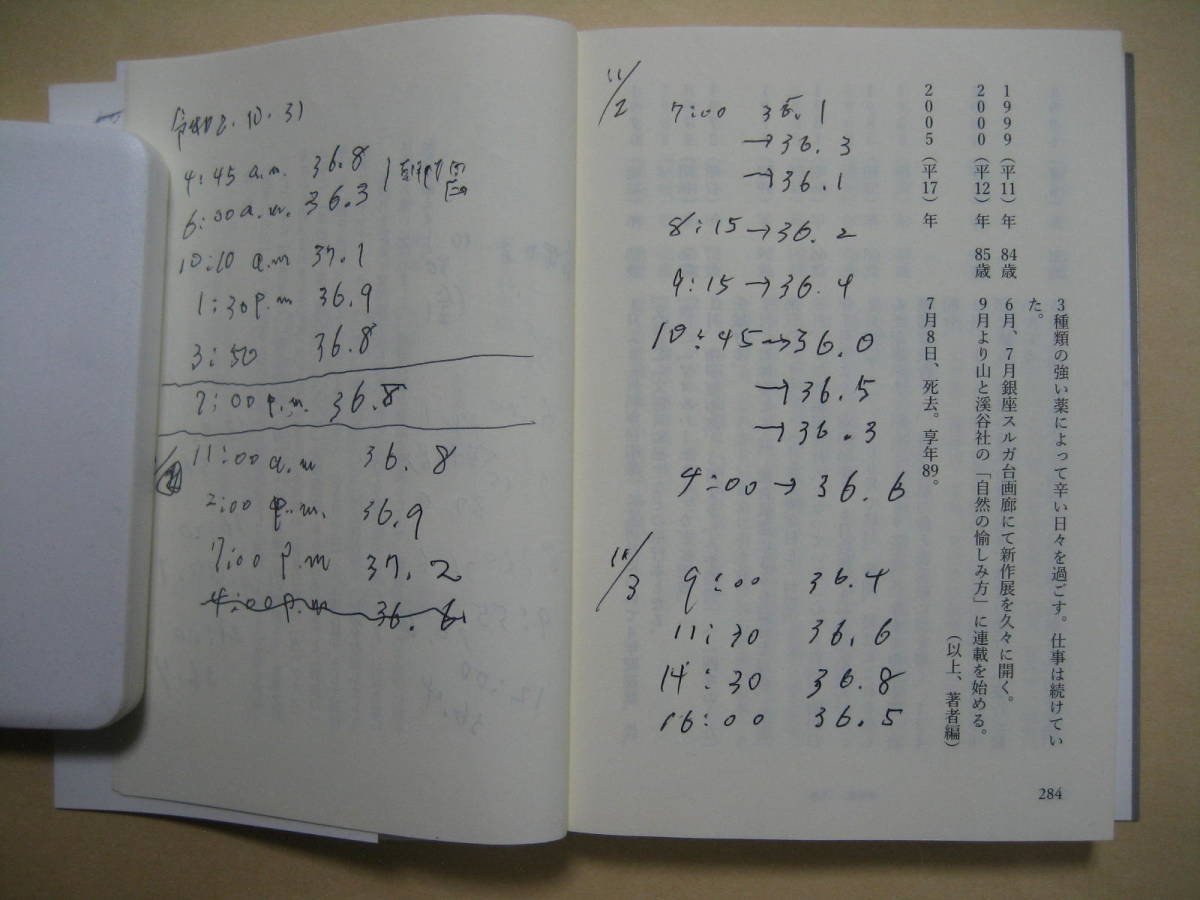 令和2.10.31
4:45 a.m. 36.8
6:00 a.m. 36.3
10:10 a.m 37.1
1:30 p.m 36.9
3:50 36.8
7:00 p.m. 36.8
11:00 a.m 36.8
2:00 p.m. 36.9
7:00 p.m 37.2
4:00 p.m 36.6
11/2
7:00 36.1
→36.3
→36.1
8:15→36.2
9:15→36.4
10:45→36.0
→36.5
→36.3
4:00→36.6
11/3
9:00 36.4
11:30 36.6
14:30 36.8
16:00 36.5
3種類の強い薬によって辛い日々を過ごす。仕事は続けてい
た。
1999(平11)年 84歳 6月、7月銀座スルガ台画廊にて新作展を久々に開く。
2000(平12)年 85歳 9月より山と溪谷社の「自然の愉しみ方」に連載を始める。
2005(平17)年 7月8日、死去。享年89。
(以上、著者編)
284